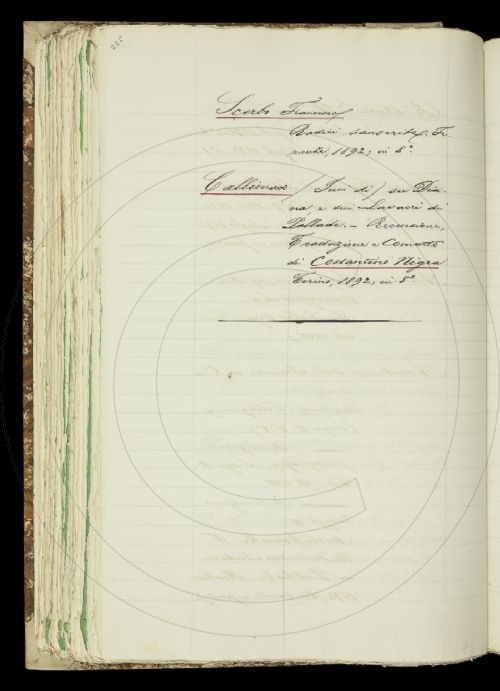 225
Scerbo Francesco/
Radici sanscrite. Fi-
renze, 1892; in 8.°
Callimaco / Inni di / su Dia-
na e sui Lavacri di
Pallade. – Recensione,
Traduzione e Comento
di Costantino Nigra
Torino, 1892; in 8.°